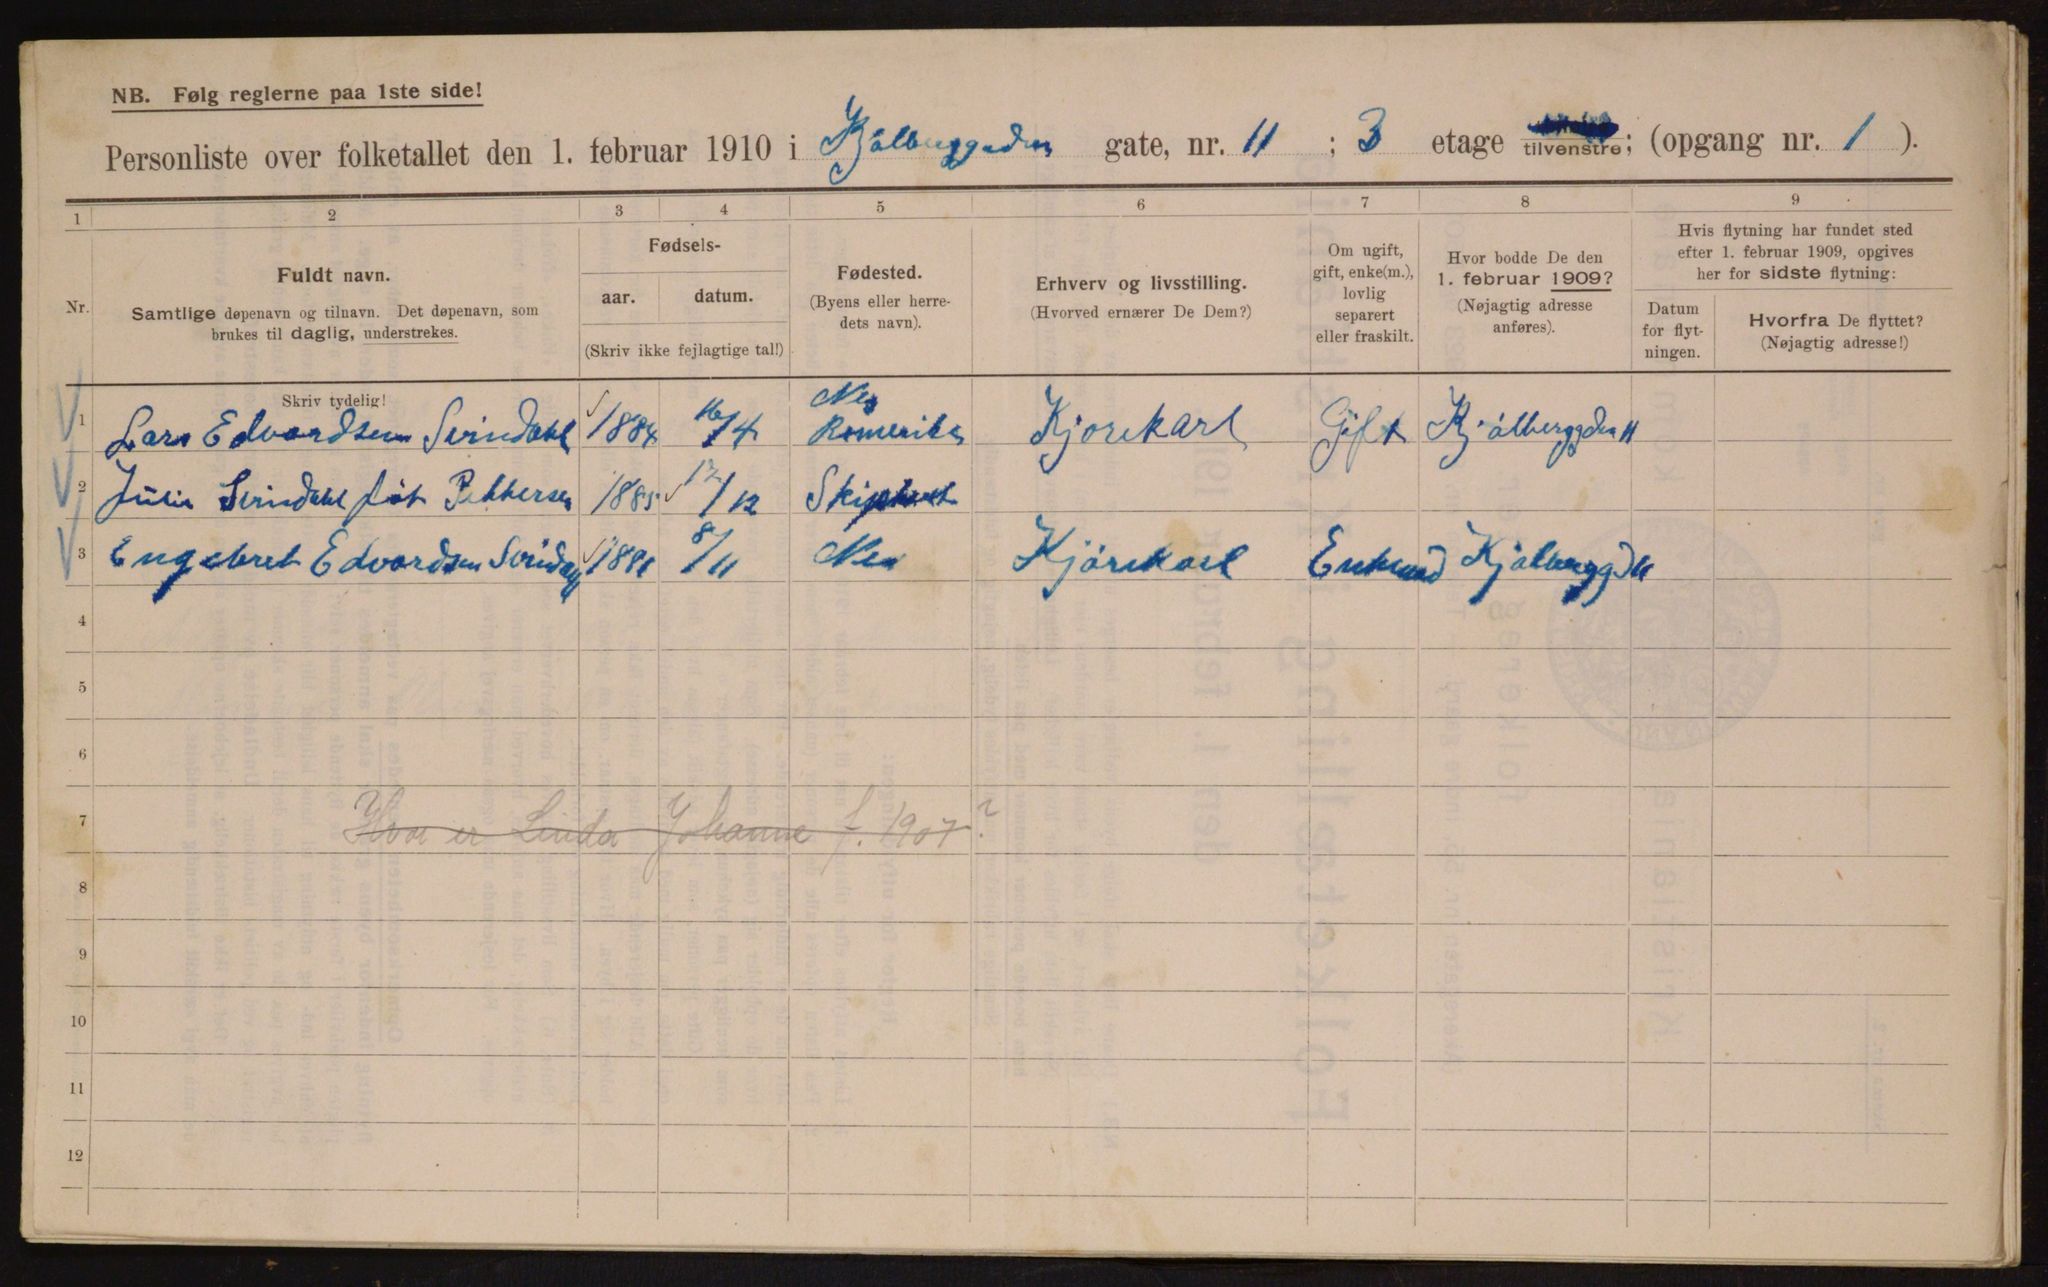 NB. Følg reglerne paa 1ste side!
Personliste over folketallet den 1. februar 1910 i Kjølberggaden gate, nr. 11 ; 3 etage tilvenstre; (opgang nr. 1 ).
1 2 3 4 5 6 7 8 9
Nr.
Fuldt navn.
Samtlige døpenavn og tilnavn. Det døpenavn, som
brukes til daglig, understrekes.
Fødsels-
aar. datum.
(Skriv ikke fejlagtige tal!)
Fødested.
(Byens eller herre-
dets navn).
Erhverv og livsstilling.
(Hvorved ernærer De Dem?)
Om ugift,
gift, enke(m.),
lovlig
separert
eller fraskilt.
Hvor bodde De den
1. februar 1909?
(Nøjagtig adresse
anføres).
Hvis flytning har fundet sted
efter 1. februar 1909, opgives
her for sidste flytning:
Datum
for flyt-
ningen.
Hvorfra De flyttet?
(Nøjagtig adresse!)
Skriv tydelig!
1 Lars Edvardsen Svindahl 1884 16/4 Nes Romerike Kjørekarl Gift Kjølberggden 11
2 Julie Svindahl føt Pettersen 1885 17/12
3 Engebret Edvardsen 1881 8/11 Nes Kjørekarl Enkemand Kjølberggd 11
4
5
6
7 Hvor er Linda Johanne f. 1907?
8
9
10
11
12